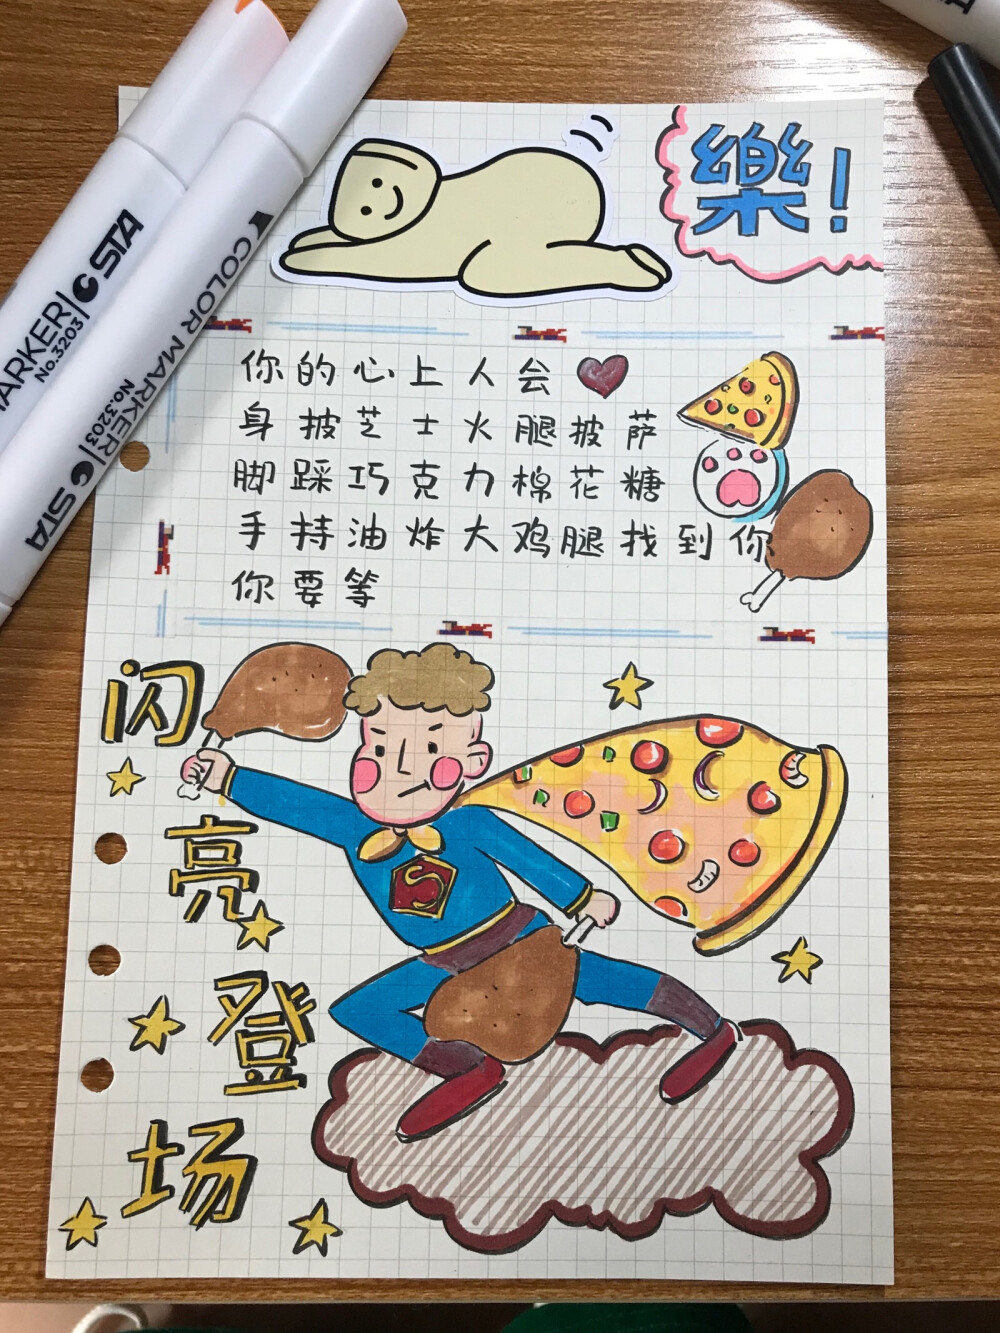 樂!
你的心上人会
身披芝士火腿披萨
脚踩巧克力棉花糖
手持油炸大鸡腿找到你
你要等
闪
亮
登
场
S
MARKER No.3203 STA
COLOR MARKER No.3203 STA